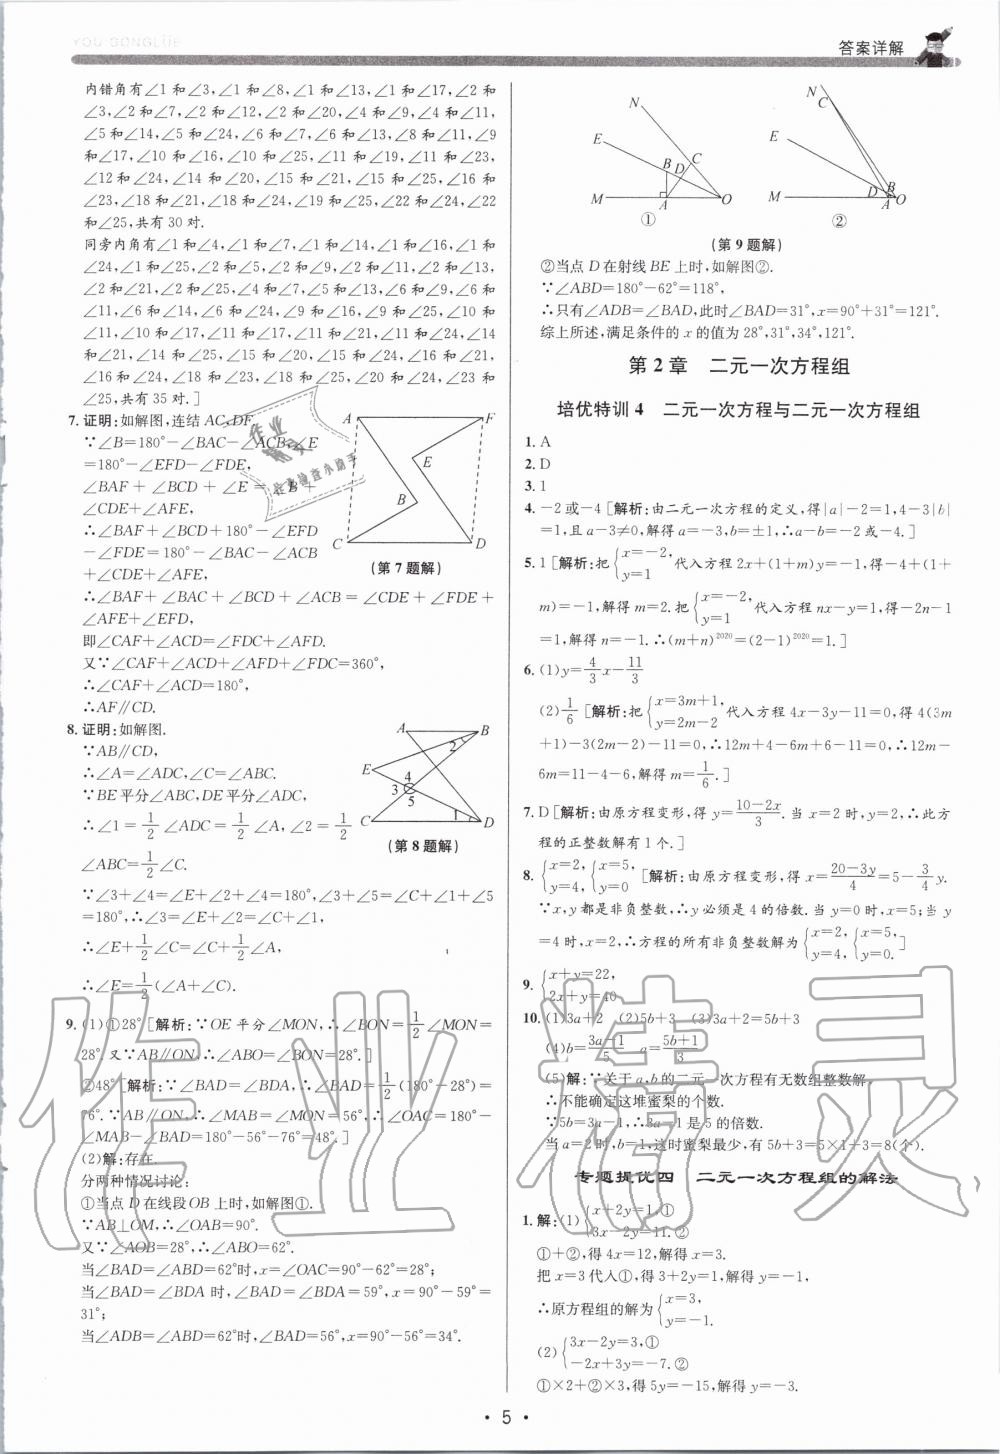 YOU GONGLÜE
答案详解
内错角有∠1 和∠3,∠1 和∠8,∠1 和∠13,∠1 和∠17,∠2 和
∠3,∠2 和∠7,∠2 和∠12,∠2 和∠20,∠4 和∠9,∠4 和∠11,
∠5 和∠14,∠5 和∠24,∠6 和∠7,∠6 和∠13,∠8 和∠11,∠9
和∠17,∠10 和∠16,∠10 和∠25,∠11 和∠19,∠11 和∠23,
∠12 和∠24,∠14 和∠20,∠15 和∠21,∠15 和∠25,∠16 和
∠23,∠18 和∠21,∠18 和∠24,∠19 和∠25,∠22 和∠24,∠22
和∠25,共有 30 对.
同旁内角有∠1 和∠4,∠1 和∠7,∠1 和∠14,∠1 和∠16,∠1 和
∠24,∠1 和∠25,∠2 和∠5,∠2 和∠9,∠2 和∠11,∠2 和∠13,
∠2 和∠21,∠2 和∠25,∠4 和∠7,∠5 和∠13,∠6 和∠9,∠6 和
∠11,∠6 和∠14,∠6 和∠24,∠9 和∠16,∠9 和∠25,∠10 和
∠11,∠10 和∠17,∠11 和∠17,∠11 和∠21,∠11 和∠24,∠14
和∠21,∠14 和∠25,∠15 和∠20,∠15 和∠24,∠16 和∠21,
∠16 和∠22,∠18 和∠19,∠18 和∠25,∠20 和∠24,∠23 和
∠25,共有 35 对.]
7. 证明:如解图,连结 AC,DF.
∵∠B=180°-∠BAC-∠ACB,∠E
=180°-∠EFD-∠FDE,
∠BAF+∠BCD+∠E=∠B+
∠CDE+∠AFE,
∴∠BAF+∠BCD+180°-∠EFD
-∠FDE=180°-∠BAC-∠ACB
+∠CDE+∠AFE,
∴∠BAF+∠BAC+∠BCD+∠ACB=∠CDE+∠FDE+
∠AFE+∠EFD,
即∠CAF+∠ACD=∠FDC+∠AFD.
又∵∠CAF+∠ACD+∠AFD+∠FDC=360°,
∴∠CAF+∠ACD=180°,
∴AF∥CD.
A F E B C D
(第 7 题解)
8. 证明:如解图.
∵AB∥CD,
∴∠A=∠ADC,∠C=∠ABC.
∵BE 平分∠ABC,DE 平分∠ADC,
∴∠1=1/2∠ADC=1/2∠A,∠2=1/2
∠ABC=1/2∠C.
∵∠3+∠4=∠E+∠2+∠4=180°,∠3+∠5=∠C+∠1+∠5
=180°,∴∠3=∠E+∠2=∠C+∠1,
∴∠E+1/2∠C=∠C+1/2∠A,
∴∠E=1/2(∠A+∠C).
A B 2 E 4 3 5 C 1 D
(第 8 题解)
9. (1)①28° [解析:∵OE 平分∠MON,∴∠BON=1/2∠MON=
28°.又∵AB∥ON,∴∠ABO=∠BON=28°.]
②48° [解析:∵∠BAD=∠BDA,∴∠BAD=1/2(180°-28°)=
76°.∵AB∥ON,∴∠MAB=∠MON=56°,∴∠OAC=180°-
∠MAB-∠BAD=180°-56°-76°=48°.]
(2)解:存在.
分两种情况讨论:
①当点 D 在线段 OB 上时,如解图①.
∵AB⊥OM,∴∠OAB=90°.
又∵∠AOB=28°,∴∠ABO=62°.
当∠BAD=∠ABD=62°时,x=∠OAC=90°-62°=28°;
当∠BAD=∠BDA 时,∠BAD=∠BDA=59°,x=90°-59°=
31°;
当∠ADB=∠ABD=62°时,∠BAD=56°,x=90°-56°=34°.
N E B D C M A O ①
N C E D B M A O ②
(第 9 题解)
②当点 D 在射线 BE 上时,如解图②.
∵∠ABD=180°-62°=118°,
∴只有∠ADB=∠BAD,此时∠BAD=31°,x=90°+31°=121°.
综上所述,满足条件的 x 的值为 28°,31°,34°,121°.
第 2 章 二元一次方程组
培优特训 4 二元一次方程与二元一次方程组
1. A
2. D
3. 1
4. -2 或-4 [解析:由二元一次方程的定义,得|a|-2=1,4-3|b|
=1,且 a-3≠0,解得 a=-3,b=±1,∴a-b=-2 或-4.]
5. 1 [解析:把{x=-2, y=1 代入方程 2x+(1+m)y=-1,得-4+(1+
m)=-1,解得 m=2.把{x=-2, y=1 代入方程 nx-y=1,得-2n-1
=1,解得 n=-1.∴(m+n)²⁰²⁰=(2-1)²⁰²⁰=1.]
6. (1)y=4/3x-11/3
(2)1/6 [解析:把{x=3m+1, y=2m-2 代入方程 4x-3y-11=0,得 4(3m
+1)-3(2m-2)-11=0,∴12m+4-6m+6-11=0,∴12m-
6m=11-4-6,解得 m=1/6.]
7. D [解析:由原方程变形,得 y=(10-2x)/3.当 x=2 时,y=2,∴此方
程的正整数解有 1 个.]
8. {x=2, y=4, {x=5, y=0 [解析:由原方程变形,得 x=(20-3y)/4=5-3/4y.
∵x,y 都是非负整数,∴y 必须是 4 的倍数.当 y=0 时,x=5;当 y
=4 时,x=2,∴方程的所有非负整数解为{x=2, y=4, {x=5, y=0.]
9. {x+y=22, 2x+y=40
10. (1)3a+2 (2)5b+3 (3)3a+2=5b+3
(4)b=(3a-1)/5 a=(5b+1)/3
(5)解:∵关于 a,b 的二元一次方程有无数组整数解,
∴不能确定这堆蜜梨的个数.
∵5b=3a-1,∴3a-1 是 5 的倍数.
当 a=2 时,b=1,这时蜜梨最少,有 5b+3=5×1+3=8(个).
专题提优四 二元一次方程组的解法
1. 解:(1){x+2y=1,① 3x-2y=11.②
①+②,得 4x=12,解得 x=3.
把 x=3 代入①,得 3+2y=1,解得 y=-1,
∴原方程组的解为{x=3, y=-1.
(2){3x-2y=3,① -2x+3y=-7.②
①×2+②×3,得 5y=-15,解得 y=-3.
• 5 •
作业精灵
作业精灵
检查小助手